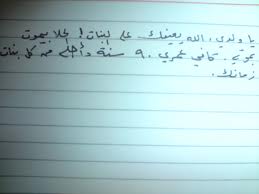 يا ولدي، الله يعينك على لبنات! الحلا بيموت
بموتي. كافي عمري ٩٠ سنة وأحلى من كل بنات
زمانك.